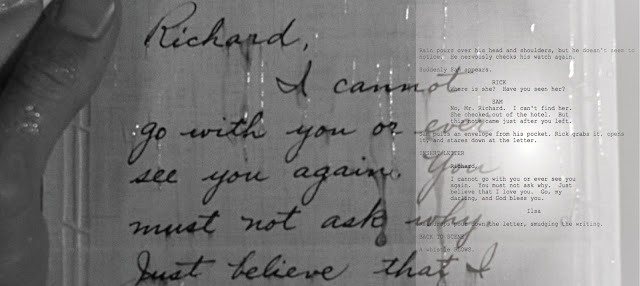 Richard,
I cannot
go with you or ever
see you again. You
must not ask why.
Just believe that I
Rain pours over his head and shoulders, but he doesn't seem to
notice. He nervously checks his watch again.
Suddenly Sam appears.
RICK
Where is she? Have you seen her?
SAM
No, Mr. Richard. I can't find her.
She checked out of the hotel. But
this note came just after you left.
Sam pulls an envelope from his pocket. Rick grabs it, opens
it, and stares down at the letter.
INSERT LETTER
Richard,
I cannot go with you or ever see you
again. You must not ask why. Just
believe that I love you. Go, my
darling, and God bless you.
Ilsa
down the letter, smudging the writing.
BACK TO SCENE
A whistle BLOWS.